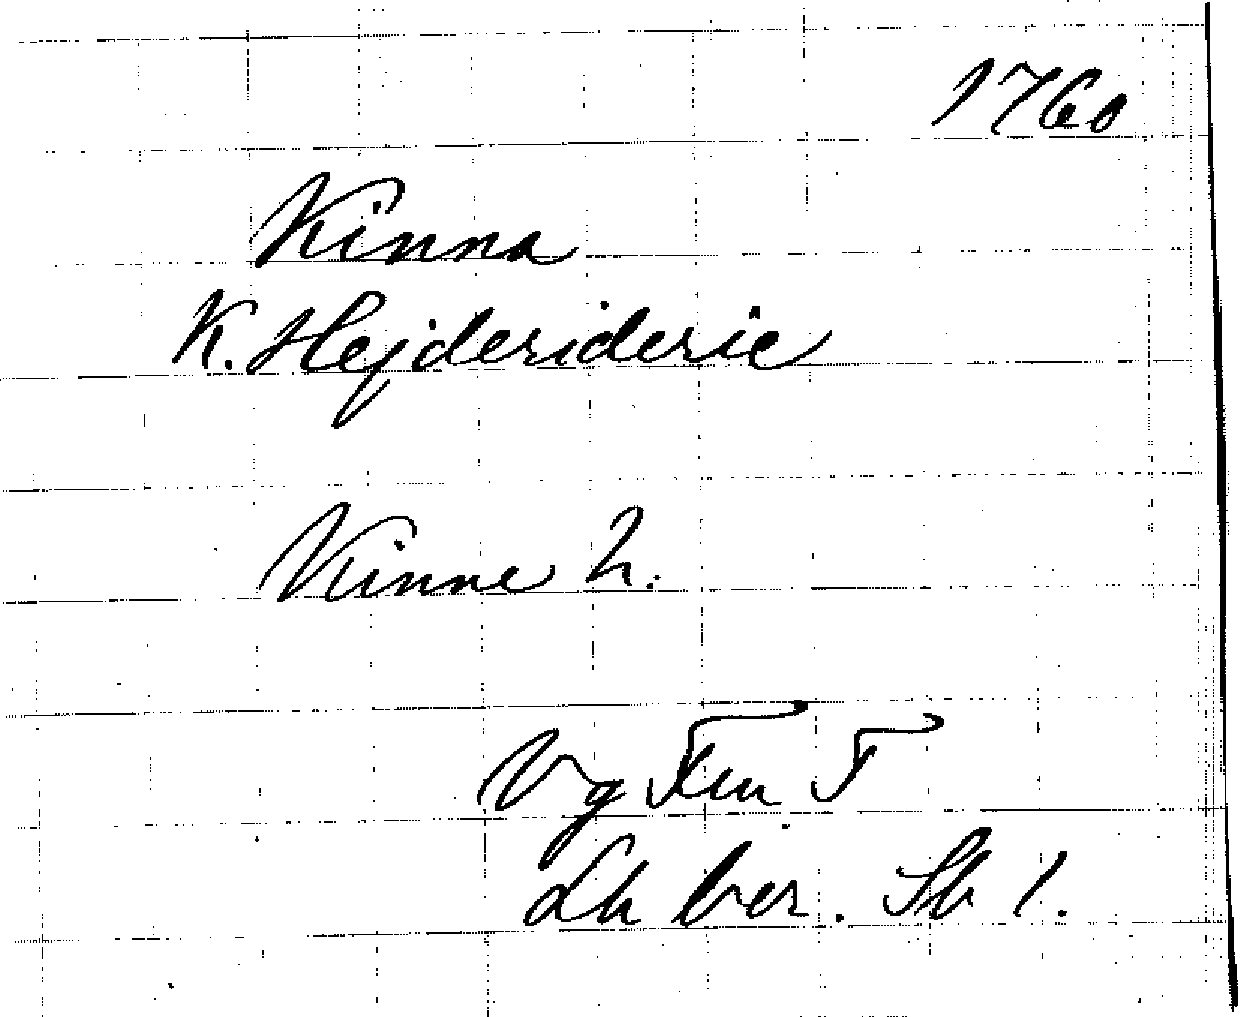 1760
Kinna
K. Hejderiderie
Kinne h.
Vg
Lh ber. Sb 1.